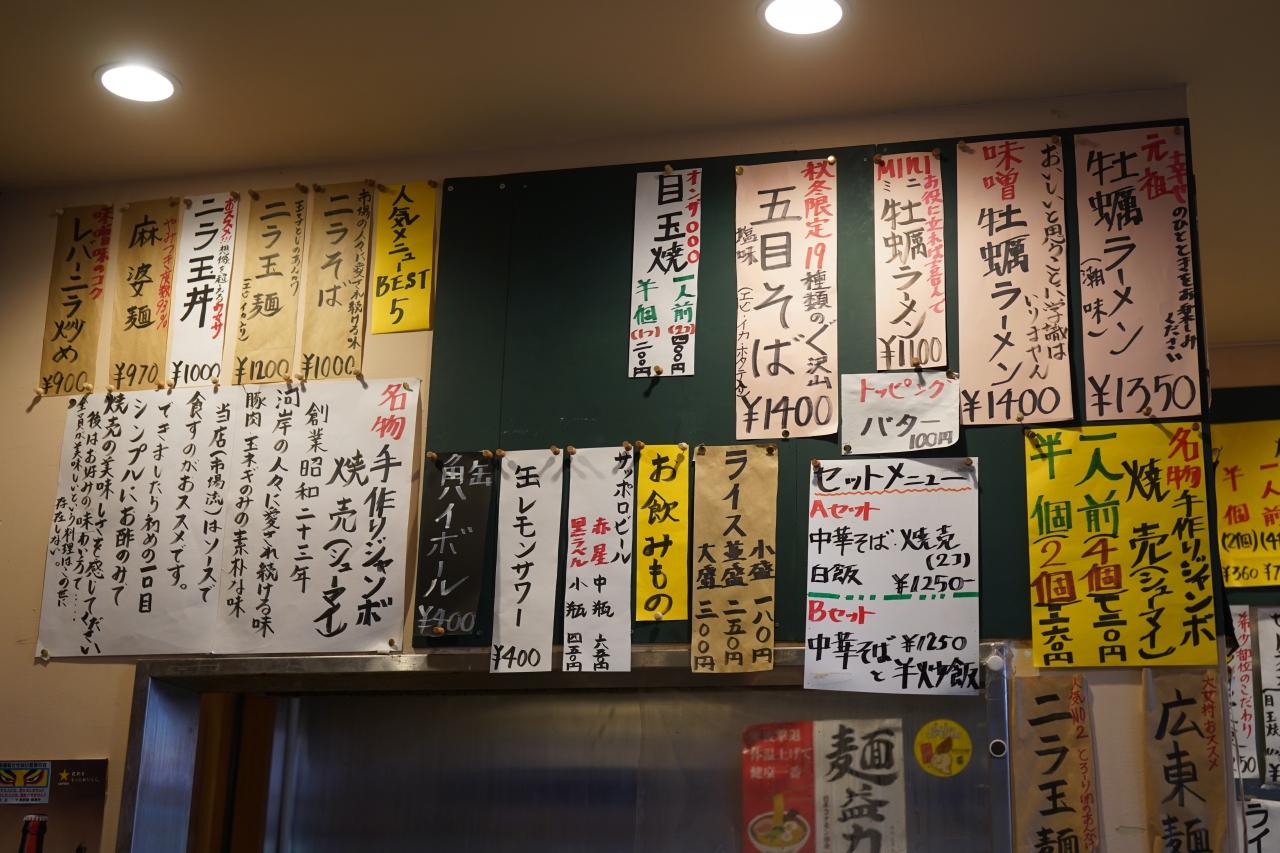 元祖
牡蠣ラーメン
(潮味)
¥1350
味噌
牡蠣ラーメン
¥1400
MINI
ミニ牡蠣ラーメン
¥1100
トッピング
バター
100円
秋冬限定19種類のぐ沢山
五目そば
塩味
¥1400
オンザ000
目玉焼
一人前(2コ)四00円
半個(1コ)二00円
人気メニュー
BEST
5
市場の人々に愛され続ける味
ニラそば
¥1000
ニラ玉麺
¥1200
オススメ!!
ニラ玉丼
¥1000
麻婆麺
¥970
味噌味のコク
レバーニラ炒め
¥900
名物
手作りジャンボ
焼売(シューマイ)
創業昭和二十三年
河岸の人々に愛され続ける味
豚肉玉ネギのみの素朴な味
当店(市場流)はソースで
食すのがおススメです。
できましたら初めの一口目
シンプルにお酢のみで
焼売の美味しさを感じてください
後はお好みの味わいで....
全員が美味しいという料理はこの世に
存在しない。
名物手作りジャンボ
焼売(シューマイ)
一人前4個七二0円
半個(2個)三六0円
セットメニュー
Aセット
中華そば・焼売
(2コ)
白飯 ¥1250-
Bセット
中華そば ¥1250
と半炒飯
ライス
小盛 一八0円
並盛 二五0円
大盛 三00円
お飲みもの
サッポロビール
赤星 中瓶
黒ラベル 小瓶
缶レモンサワー
¥400
缶
角ハイボール
¥400
半
個
(2個)
¥360
ニラ玉麺
広東麺
体温上げて
健康一番
麺益力